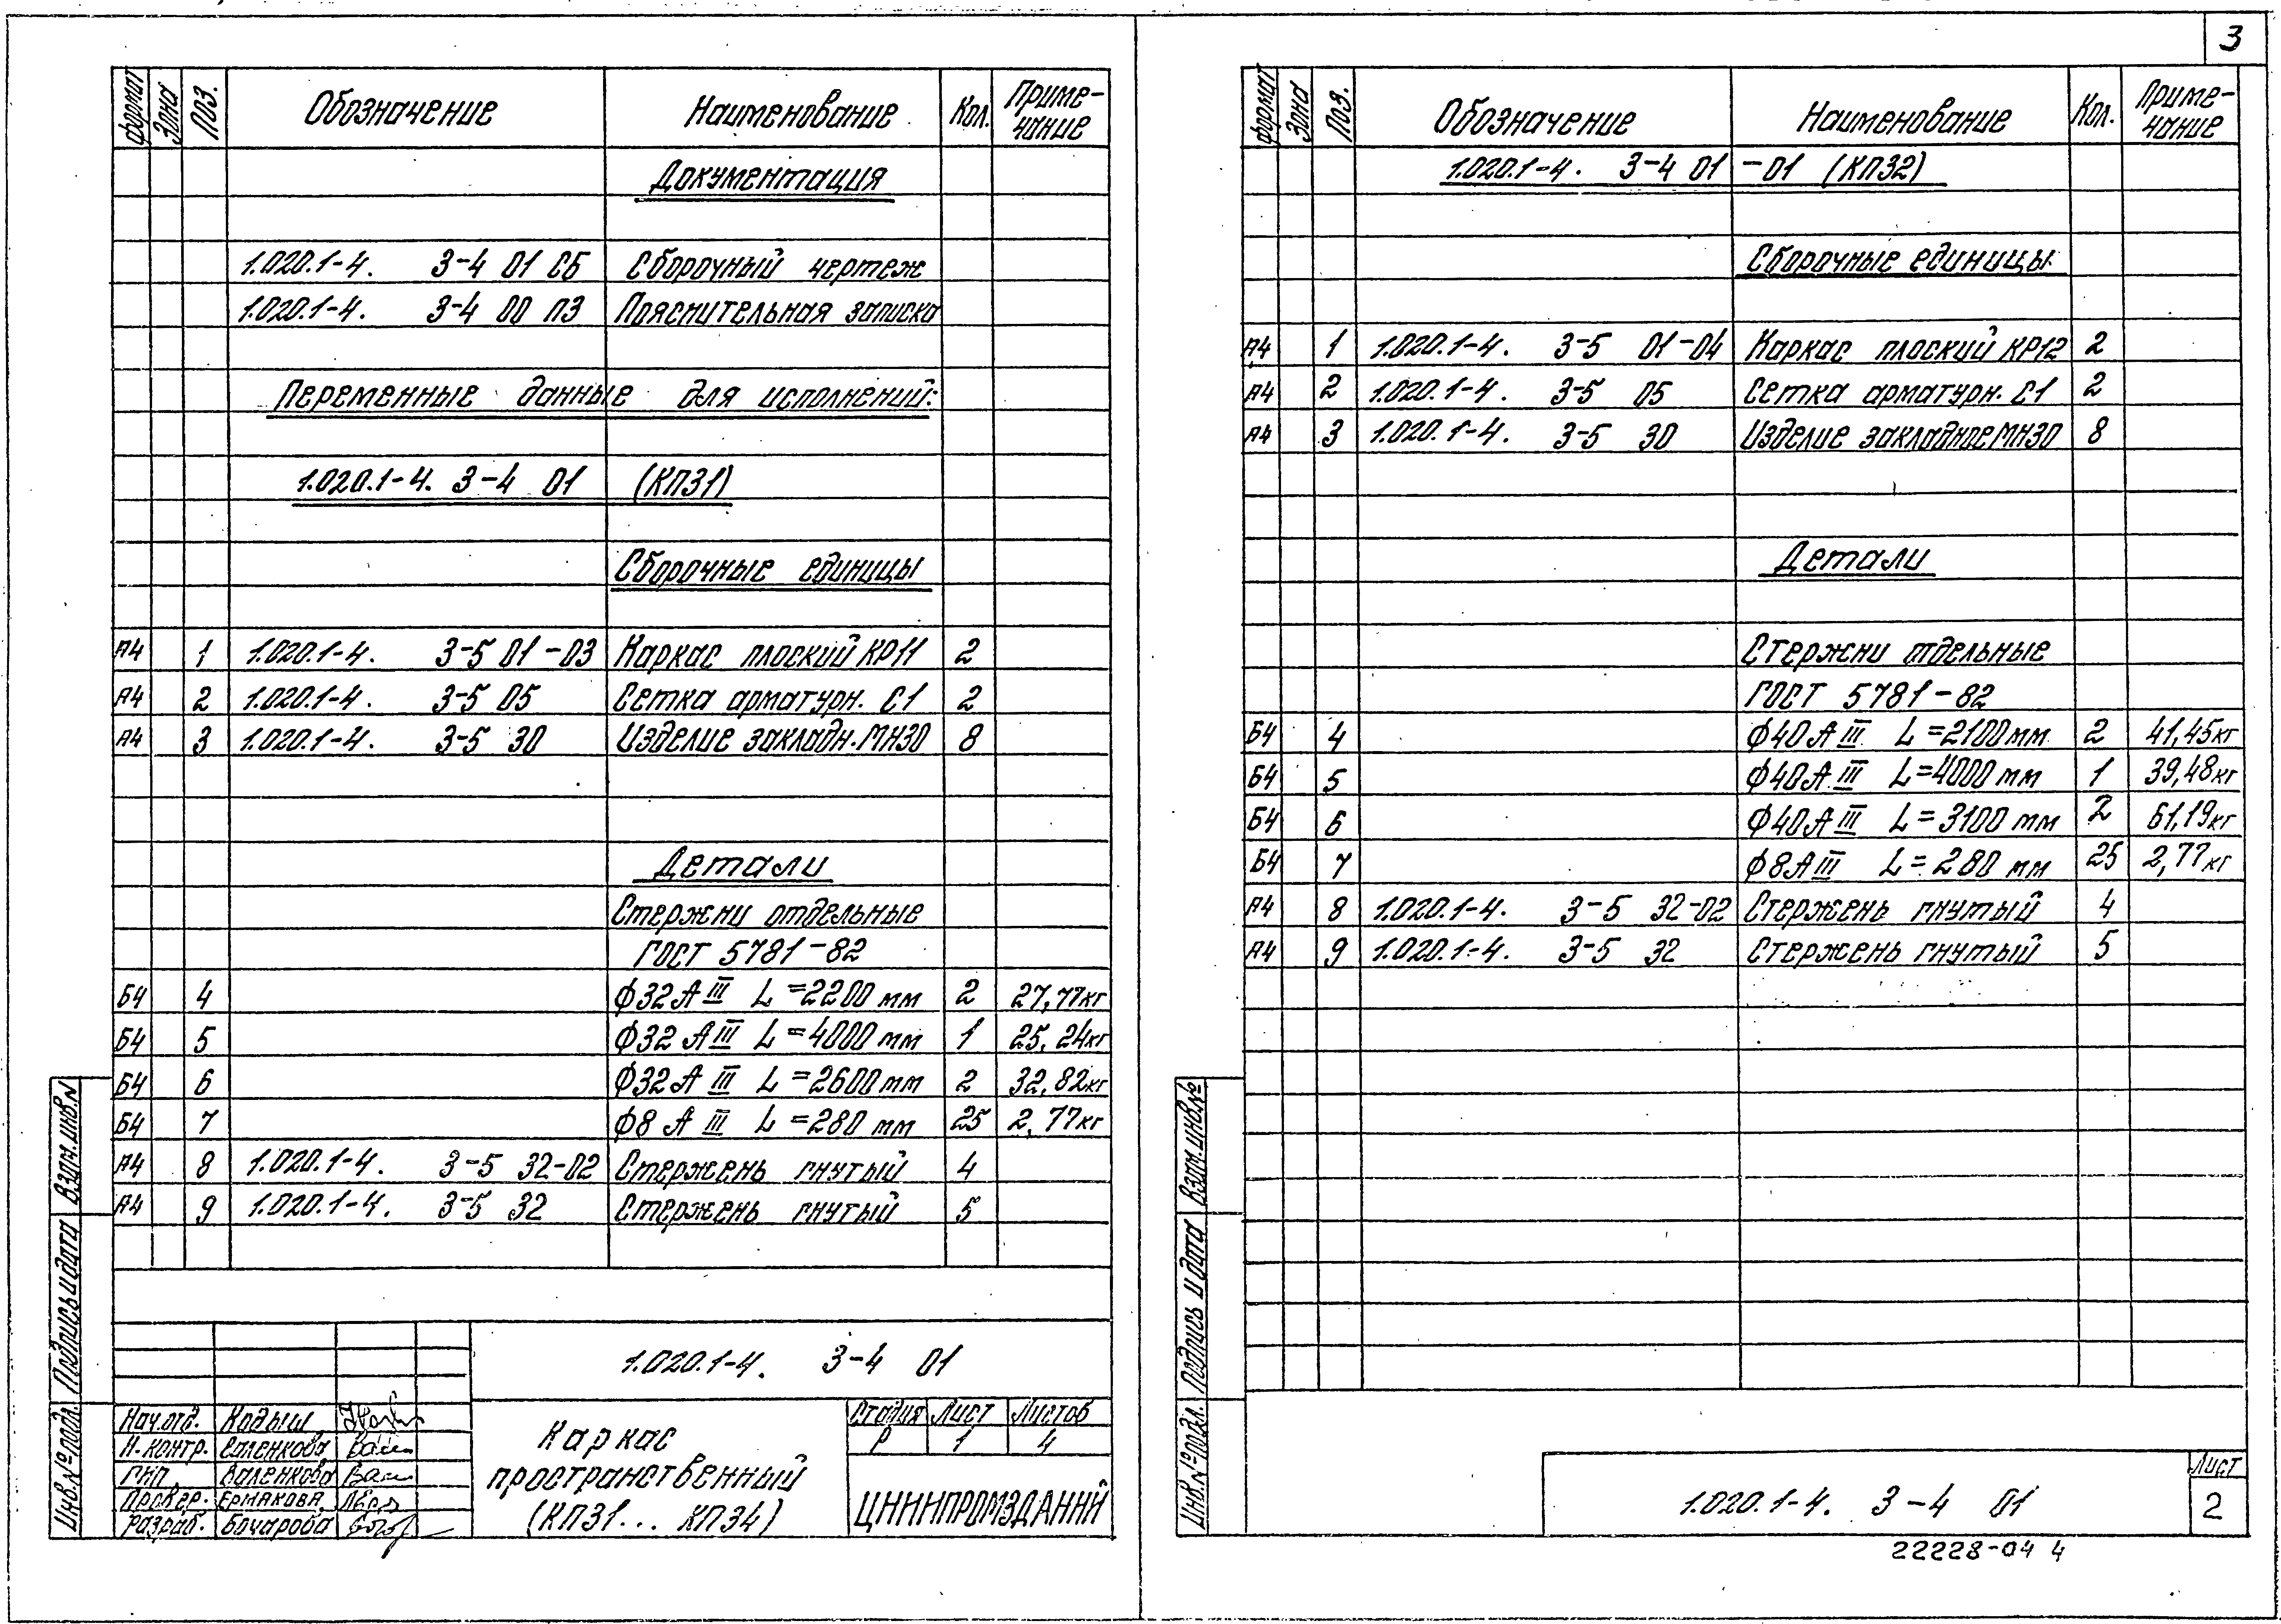 3
формат Зона Поз. Обозначение Наименование Кол. Приме-
чание
Документация
1.020.1-4. 3-4 01 СБ Сборочный чертеж
1.020.1-4. 3-4 00 ПЗ Пояснительная записка
Переменные данные для исполнений:
1.020.1-4. 3-4 01 (КП31)
Сборочные единицы
А4 1 1.020.1-4. 3-5 01-03 Каркас плоский КР11 2
А4 2 1.020.1-4. 3-5 05 Сетка арматурн. С1 2
А4 3 1.020.1-4. 3-5 30 Изделие закладн. МН30 8
Детали
Стержни отдельные
ГОСТ 5781-82
Б4 4 Ф32 А III L=2200 мм 2 27,77кг
Б4 5 Ф32 А III L=4000 мм 1 25,24кг
Б4 6 Ф32 А III L=2600 мм 2 32,82кг
Б4 7 Ф8 А III L=280 мм 25 2,77кг
А4 8 1.020.1-4. 3-5 32-02 Стержень гнутый 4
А4 9 1.020.1-4. 3-5 32 Стержень гнутый 5
Инв.№подл. Подпись и дата Взам.инв.N
1.020.1-4. 3-4 01
Нач.отд. Кодыш
Н.контр. Валенкова
ГИП Валенкова
Провер. Ермакова
Разраб. Бочарова
Каркас
пространственный
(КП31... КП34)
Стадия Лист Листов
Р 1 4
ЦНИИПРОМЗДАНИЙ
формат Зона Поз. Обозначение Наименование Кол. Приме-
чание
1.020.1-4. 3-4 01 -01 (КП32)
Сборочные единицы
А4 1 1.020.1-4. 3-5 01-04 Каркас плоский КР12 2
А4 2 1.020.1-4. 3-5 05 Сетка арматурн. С1 2
А4 3 1.020.1-4. 3-5 30 Изделие закладное МН30 8
Детали
Стержни отдельные
ГОСТ 5781-82
Б4 4 Ф40 А III L=2100 мм 2 41,45кг
Б4 5 Ф40 А III L=4000 мм 1 39,48кг
Б4 6 Ф40 А III L=3100 мм 2 61,19кг
Б4 7 Ф8 А III L=280 мм 25 2,77кг
А4 8 1.020.1-4. 3-5 32-02 Стержень гнутый 4
А4 9 1.020.1-4. 3-5 32 Стержень гнутый 5
Инв.№подл. Подпись и дата Взам.инв.№
1.020.1-4. 3-4 01
Лист
2
22228-04 4